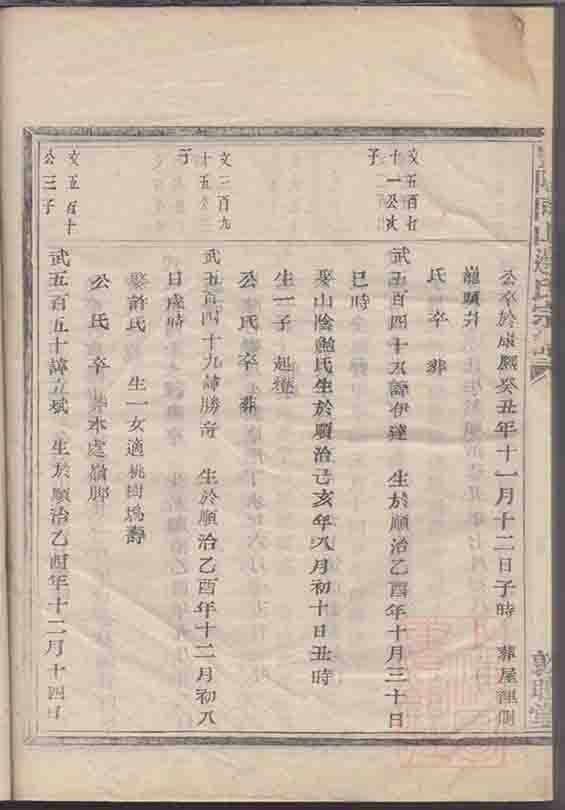 公卒於康熙癸丑年十一月十二日子時 葬屋理側
氏卒葬
文五百七
十一公次
子
武五百四十九諱伊達 生於順治乙酉年十月三十日
巳時
娶山陰鮑氏生於順治己亥年八月初十日丑時
生一子 起
公氏卒葬
文二百九
十五公三
子
武五百四十九諱勝奇 生於順治乙酉年十二月初八
日 時
娶許氏 生一女適桃樹塢壽
公氏卒 本處嶺脚
文五百十
公三子
武五百五十諱立斌 生於順治乙酉年十二月十四日